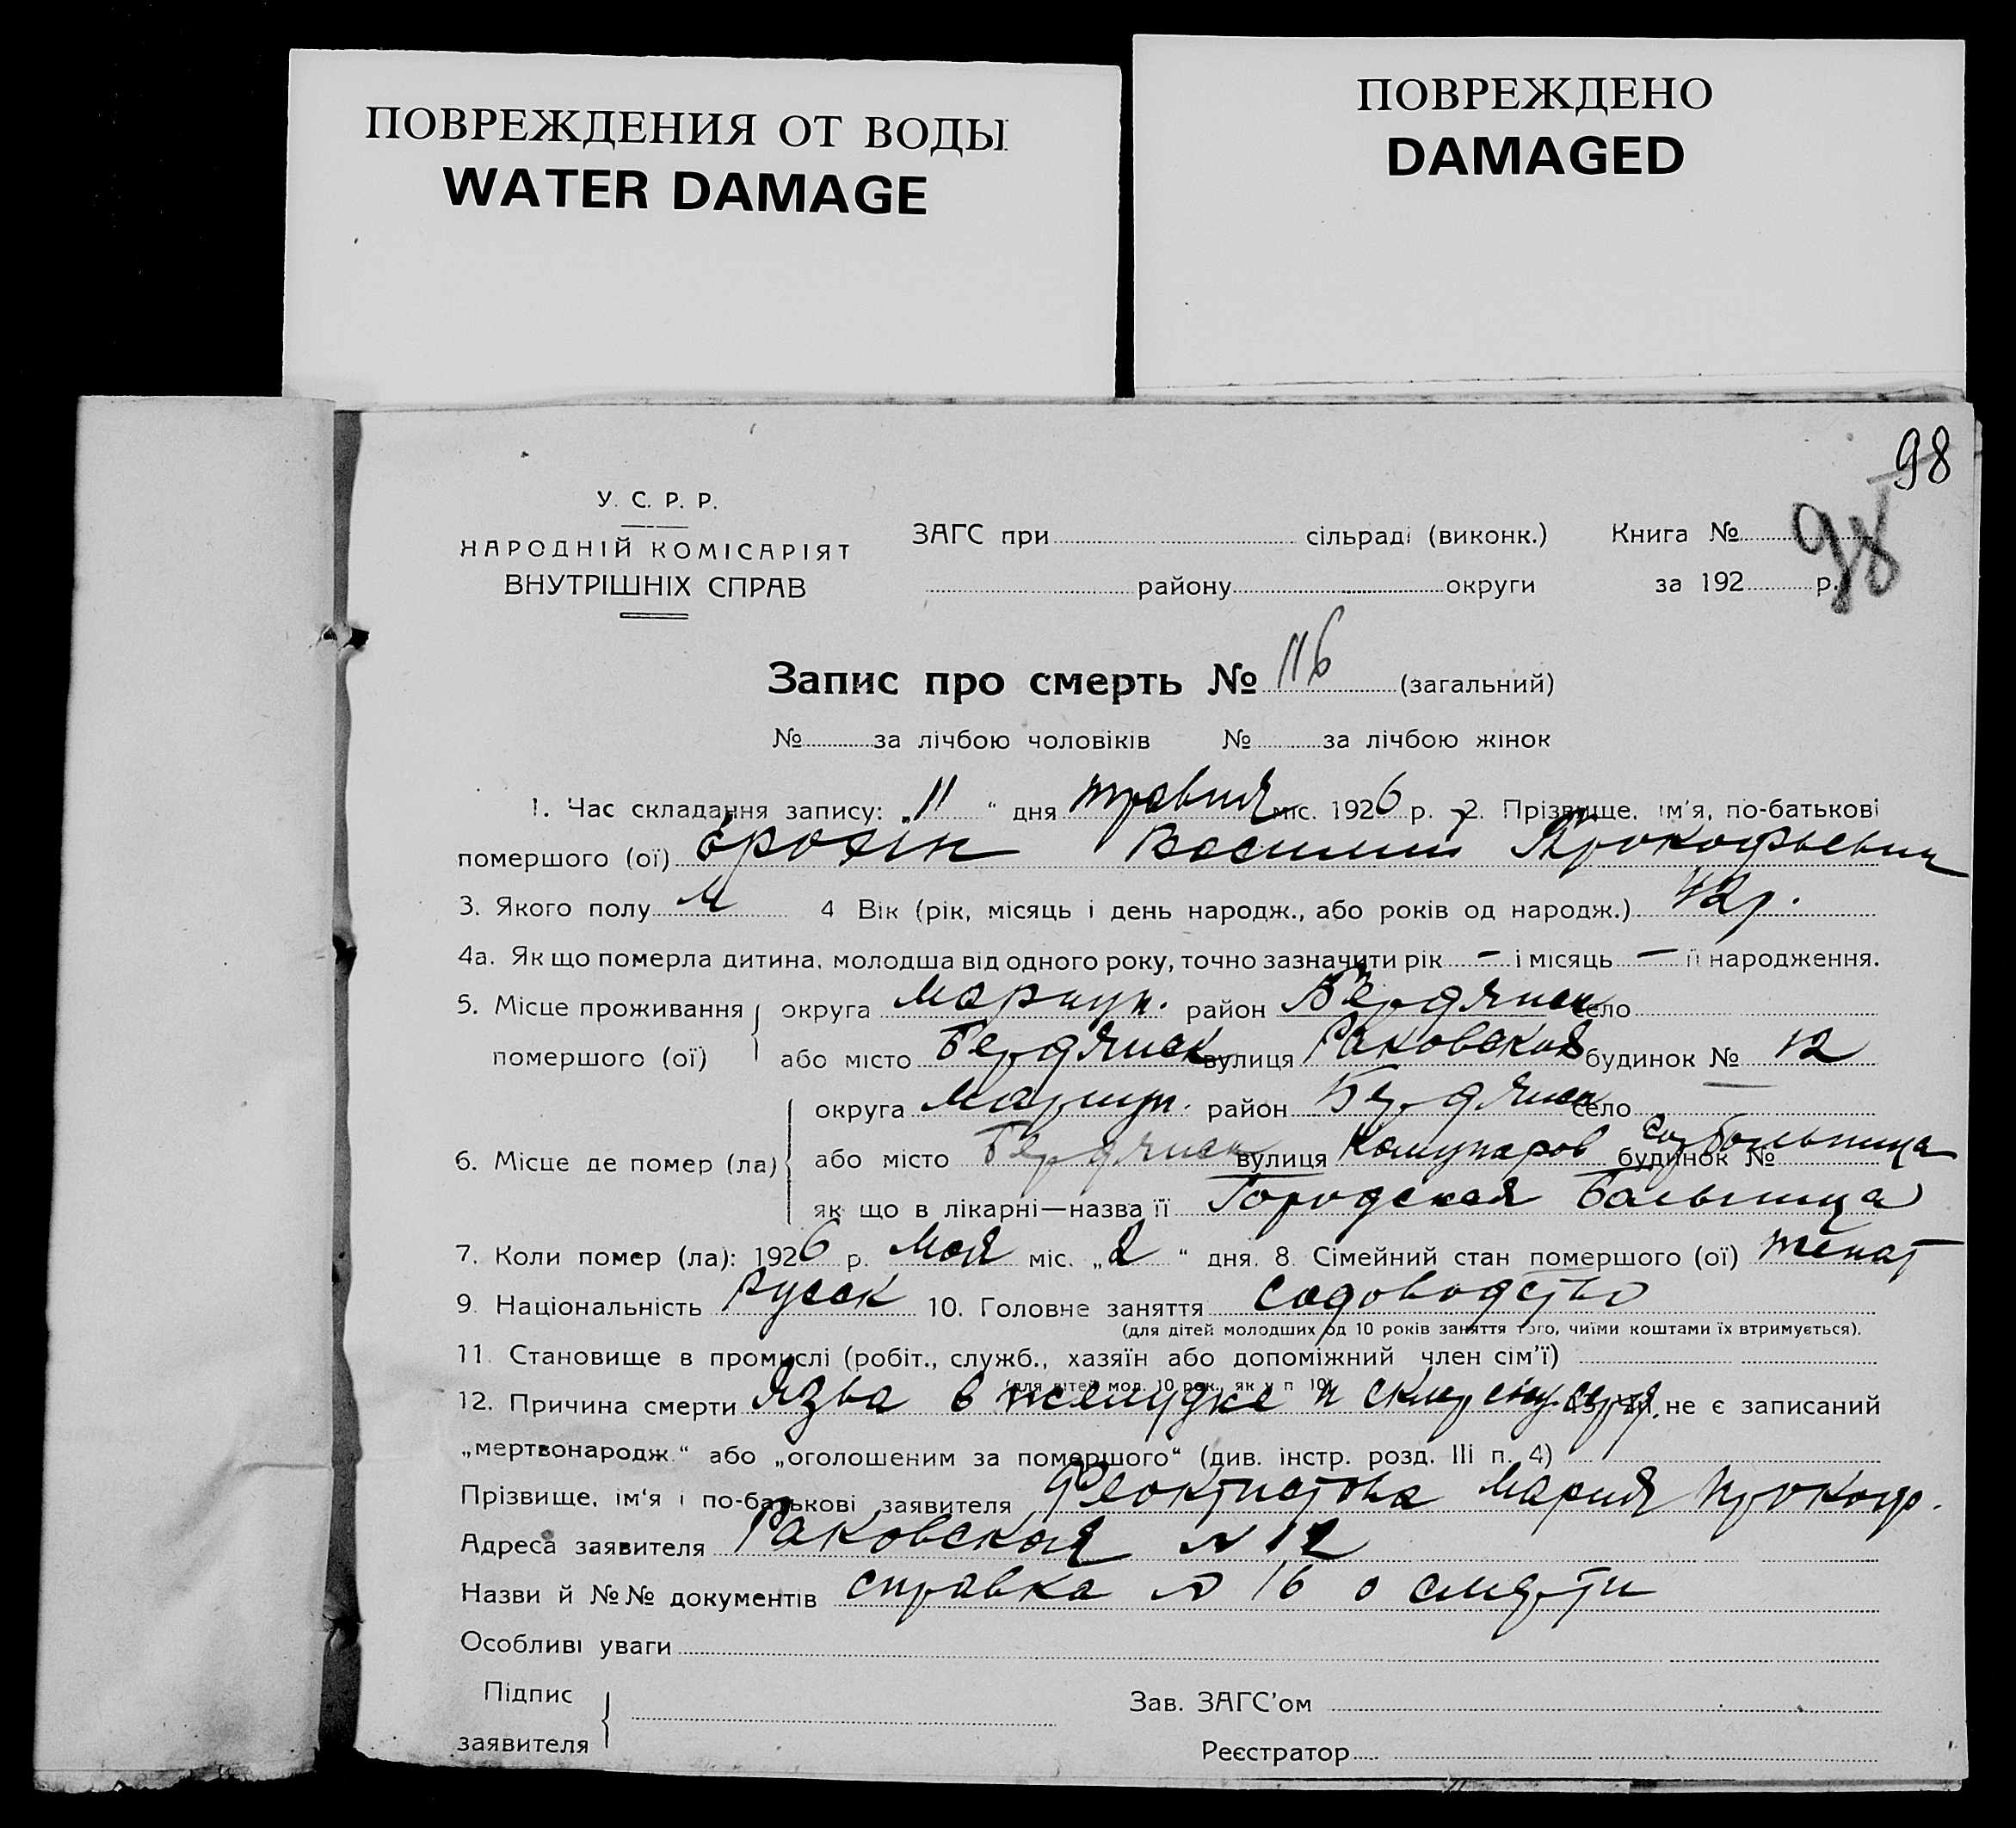 ПОВРЕЖДЕНИЯ ОТ ВОДЫ
WATER DAMAGE
ПОВРЕЖДЕНО
DAMAGED
98
98
У. С. Р. Р.
НАРОДНІЙ КОМІСАРІЯТ
ВНУТРІШНІХ СПРАВ
ЗАГС при сільраді (виконк.) Книга №
району округи за 192 р.
Запис про смерть № 116 (загальний)
№ за лічбою чоловіків № за лічбою жінок
1. Час складання запису: „11“ дня травня міс. 1926 р. 2. Прізвище, ім'я, по-батькові
помершого (ої) Ерохин Василий Прокофьевич
3. Якого полу М 4 Вік (рік, місяць і день народж., або років од народж.) 42 р.
4а. Як що померла дитина, молодша від одного року, точно зазначити рік — і місяць — її народження.
5. Місце проживання округа Мариуп. район Бердянск село
помершого (ої) або місто Бердянск вулиця Раковская будинок № 12
округа Мариуп. район Бердянск село
6. Місце де помер (ла) або місто Бердянск вулиця Комунаров будинок № больница
як що в лікарні—назва її Городская Больница
7. Коли помер (ла): 1926 р. Мая міс. „2“ дня. 8. Сімейний стан помершого (ої) женат
9. Національність русск 10. Головне заняття садоводство
(для дітей молодших од 10 років заняття того, чиїми коштами їх втримується).
11. Становище в промислі (робіт., служб., хазяїн або допоміжний член сім'ї)
(для дітей мол. 10 рок., як у п 10)
12. Причина смерти Язва в желудке и не є записаний
„мертвонародж.“ або „оголошеним за помершого“ (див. інстр. розд. III п. 4)
Прізвище, ім'я і по-батькові заявителя Феоктистова Мария Прокоф.
Адреса заявителя Раковская № 12
Назви й №№ документів справка № 16 о смерти
Особливі уваги
Підпис
заявителя
Зав. ЗАГС'ом
Реєстратор